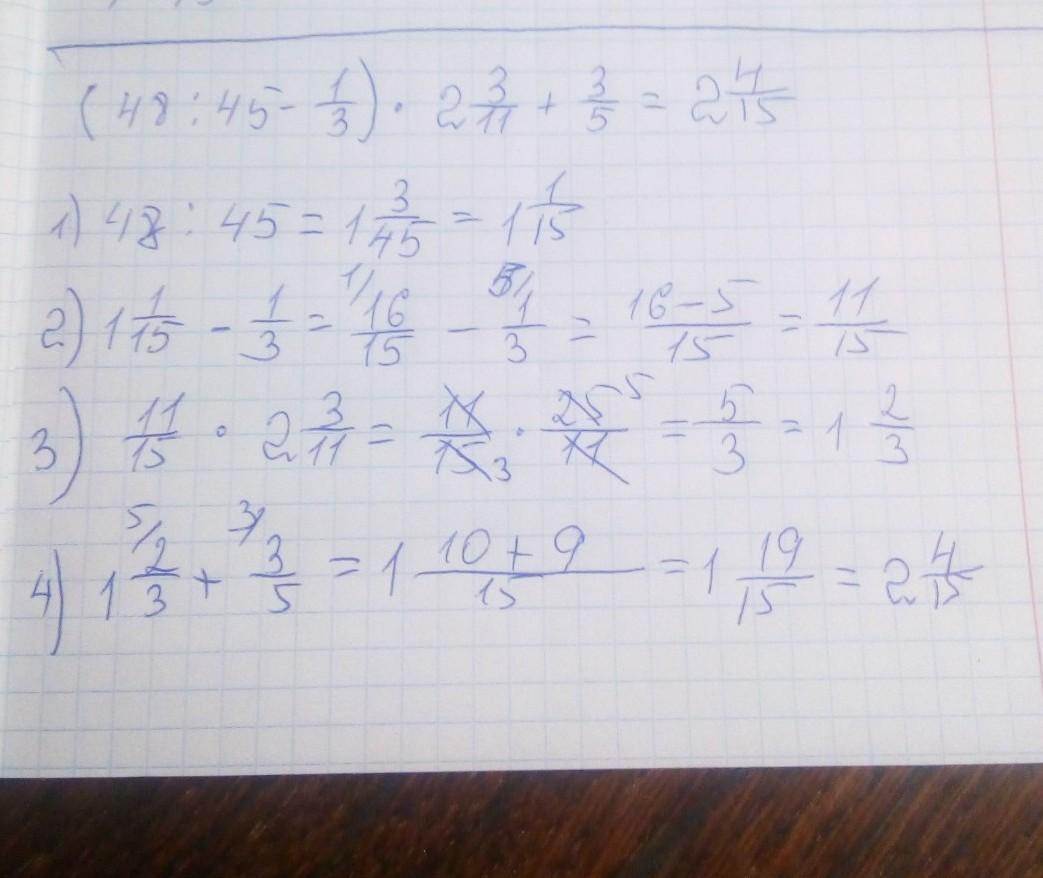 (48 : 45 - 1/3) · 2 3/11 + 3/5 = 2 4/15
1) 48 : 45 = 1 3/45 = 1 1/15
2) 1 1/15 - 1/3 = 1/ 16/15 - 5/ 1/3 = 16-5/15 = 11/15
3) 11/15 · 2 3/11 = 11/15 3 · 25 5/11 = 5/3 = 1 2/3
4) 1 5/ 2/3 + 3/ 3/5 = 1 10+9/15 = 1 19/15 = 2 4/15